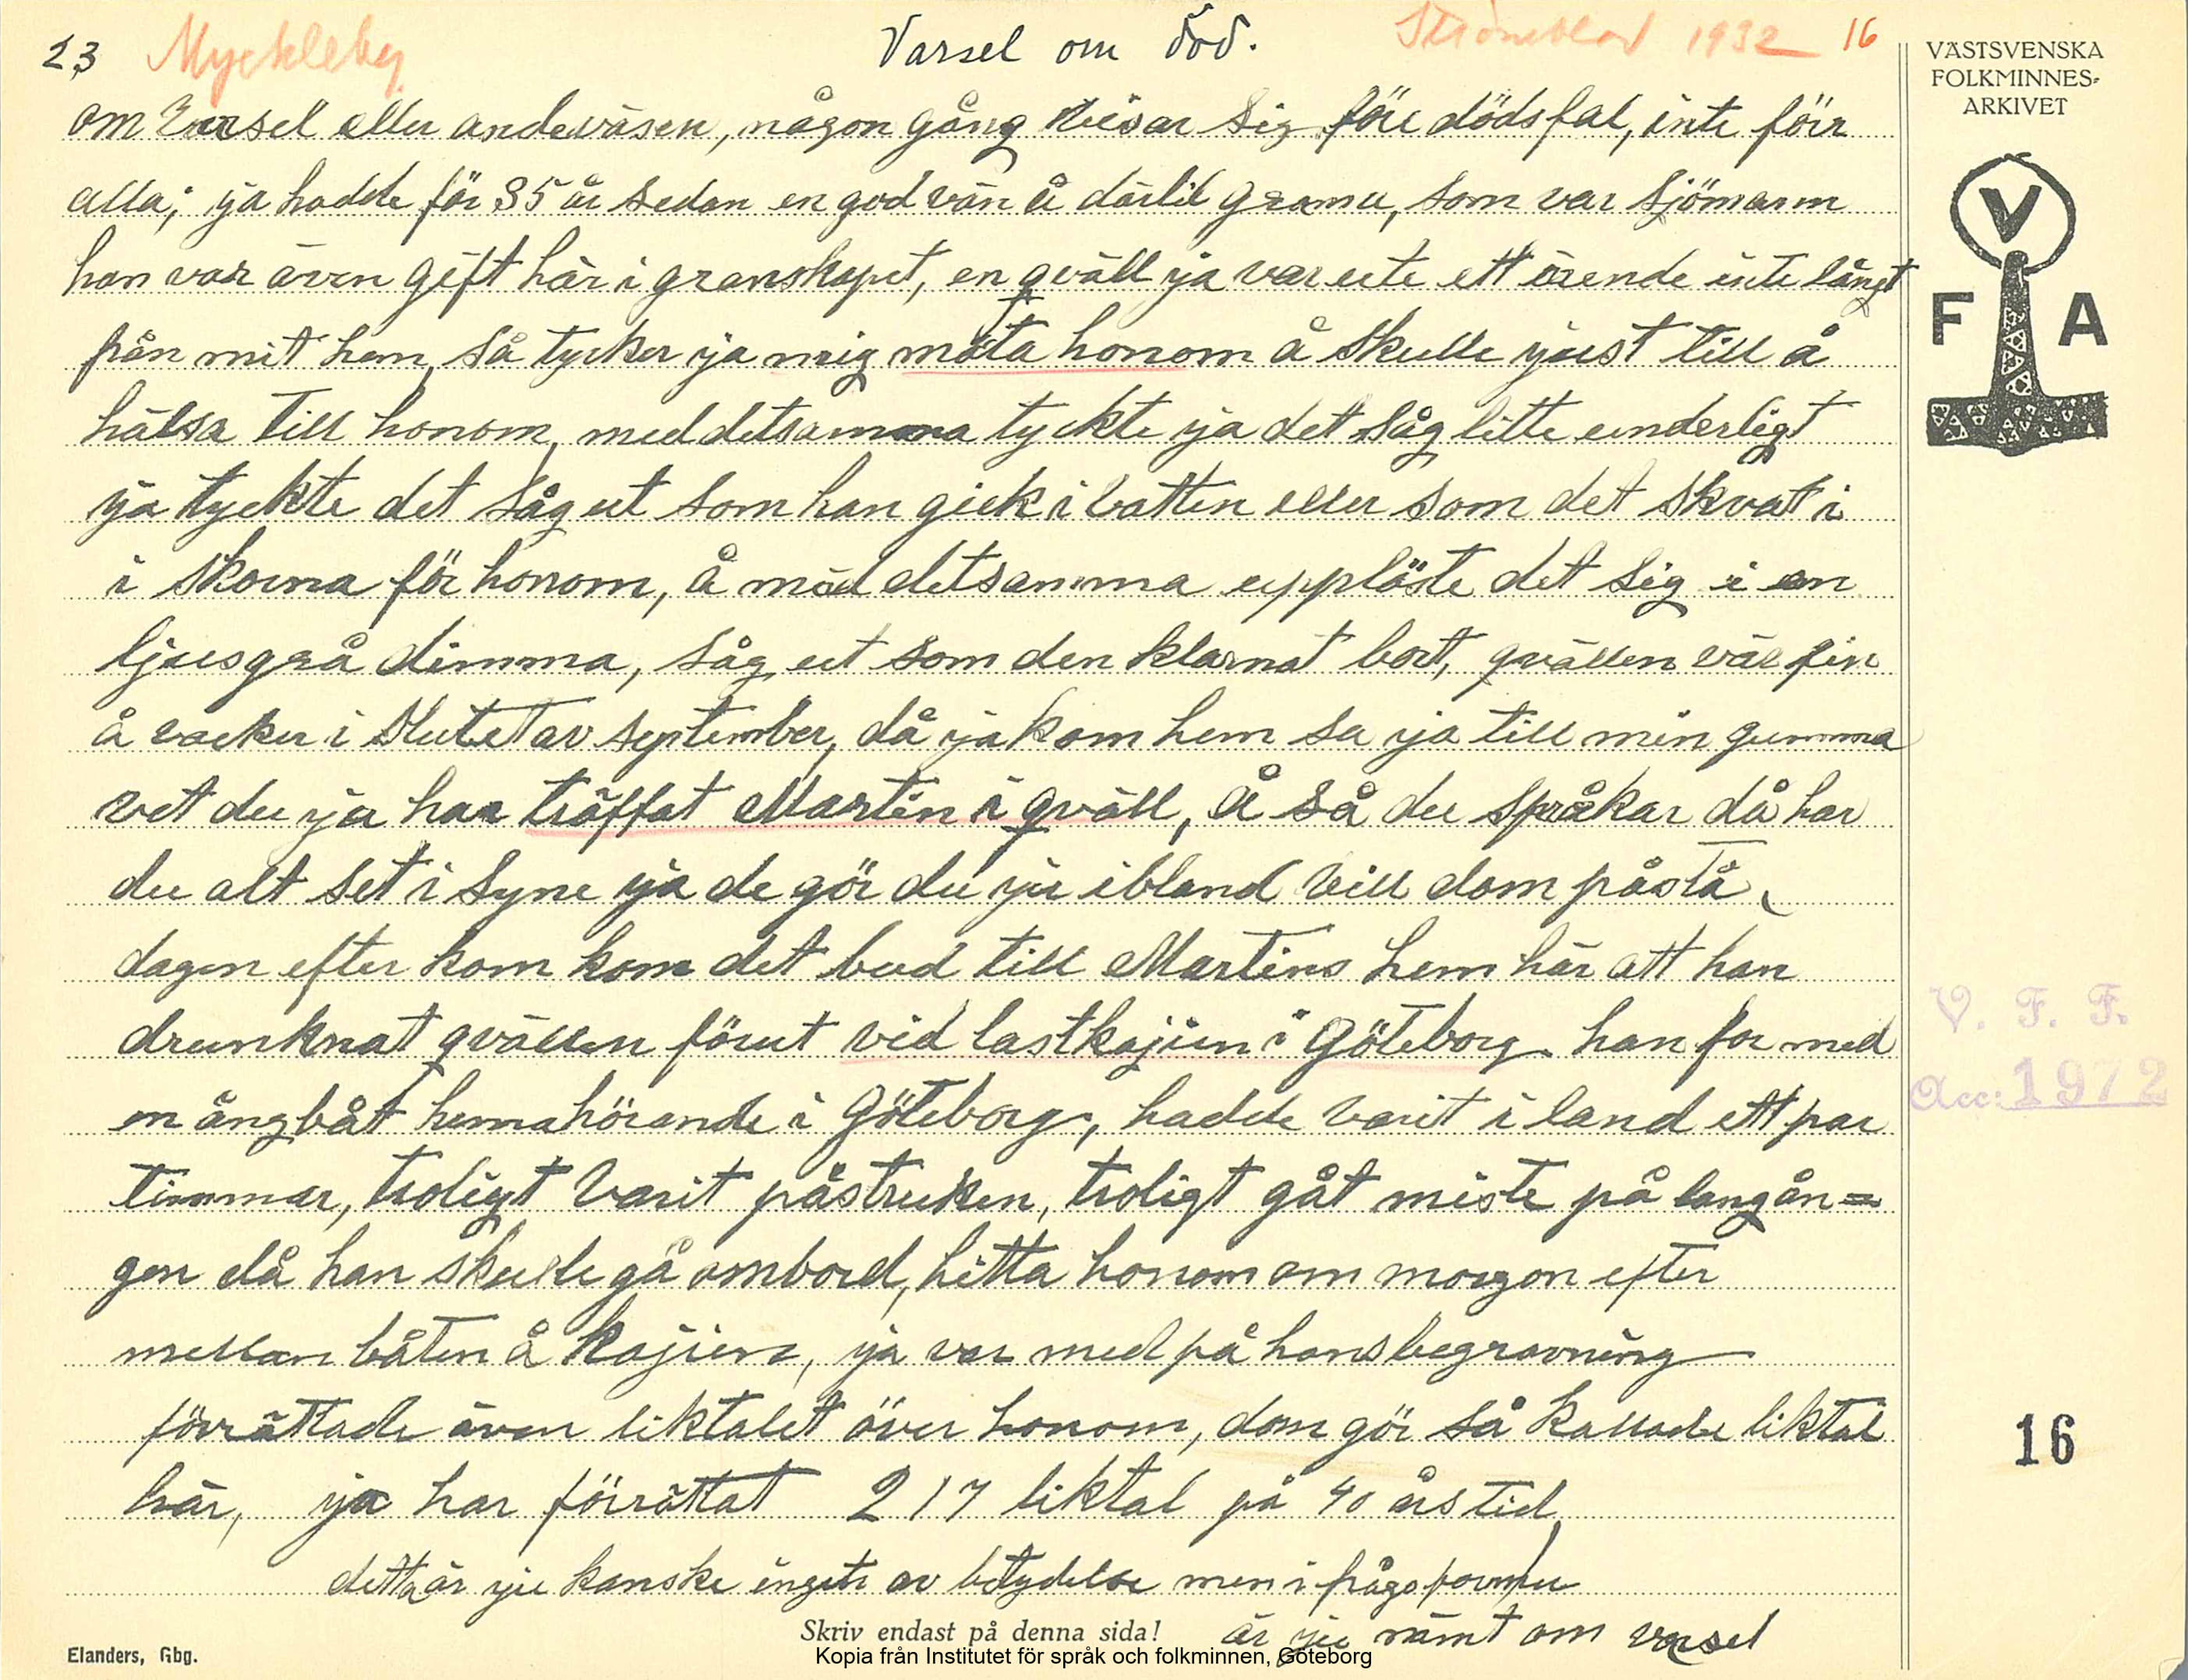 23 Myckleby Varsel om död. Strömblad 1932 16
VÄSTSVENSKA
FOLKMINNES-
ARKIVET
om varsel eller andeväsen, någon gång visar sig före dödsfal, inte förr
alla; ja hadde för 35 år sedan en god vän å därtil granne, som var sjömann
han var även gift här i granskapet, en qväll ja var ute ett ärende inte långt
från mit hem, så tycker ja mig möta honom å skulle just till å
hälsa till honom, med detsamma tyckte ja det såg litte underligt
ja tyckte det såg ut som han gick i vatten eller som det skvat i
i skorna för honom, å med detsamma upplöste det sig i en
ljusgrå dimma, såg ut som den klarnat bort, qvällen var fin
å vacker i slutet av september, då ja kom hem sa ja till min gumma
vet du ja har träffat Martin i qväll, å så du språkar då har
du alt set i syne ja de gör du ju ibland vill dom påstå,
dagen efter kom kom det bud till Martins hem här att han
drunknat qvällen förut vid lastkajien i Göteborg. han for med
en ångbåt hemahörande i Göteborg, hadde varit i land ett par
timmar, troligt varit påstruken, troligt gåt miste på langån=
gen då han skulle gå ombord, hitta honom om morgon efter
mellan båten å kajien, ja var med på hans begravning
förrättade även liktalet över honom, dom gör så kallade liktal
här, ja har förrättat 217 liktal på 40 års tid,
detta är ju kanske ingete av betydelse men i frågoformu
är ju nämt om varsel
V F A
V. F. F.
Acc: 1972
16
Skriv endast på denna sida!
Elanders, Gbg.
Kopia från Institutet för språk och folkminnen, Göteborg